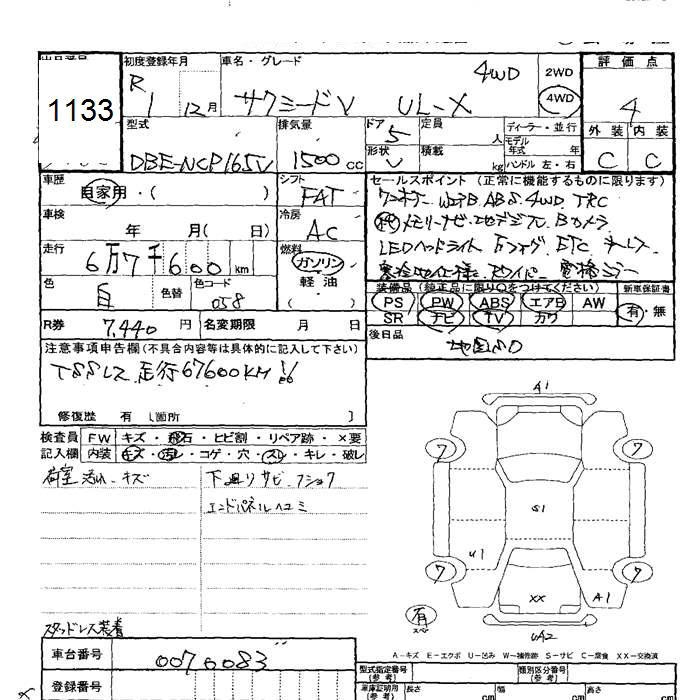 出品番号
1133
初度登録年月
R 1 12月
車名・グレード
サクシードV UL-X 4WD
2WD
4WD
評価点
4
外装 内装
C C
型式
DBE-NCP165V
排気量
1500cc
ドア 5
形状 V
定員 人
積載 kg
ディーラー・並行
モデル年式 年
ハンドル 左・右
車歴
自家用・( )
シフト
FAT
車検
年 月( 日)
冷房
AC
走行
6万7千600km
燃料
ガソリン
( 軽油 )
色
白
色替
色コード
058
R券 7,440円
名変期限 月 日
セールスポイント (正常に機能するものに限ります)
ワンオーナー WエアB. ABS. 4WD TRC
メモリーナビ・地デジTV. Bカメラ
LEDヘッドライト ETC キーレス
寒冷地仕様
装備品(純正品に限り○をつけてください)
PS PW ABS エアB AW
SR ナビ TV カワ
新車保証書
有・無
後日品
地図SD
注意事項申告欄(不具合内容等は具体的に記入して下さい)
TSSレス 走行67600KM
修復歴 有 [箇所 ]
検査員記入欄
FW キズ・飛石・ヒビ割・リペア跡・×要
内装 キズ・汚レ・コゲ・穴・スレ・キレ・破レ
荷室 汚れ・キズ
下廻りサビ・フショク
エンドパネルユガミ
スタッドレス装着
A1
7 7
S1
U1
7 7
XX A1
UA2
有
スペア
A-キズ E-エクボ U-凹み W-補修跡 S-サビ C-腐食 XX-交換済
車台番号
0070083
登録番号
型式指定番号(参考)
類別区分番号(参考)
車庫証明用(参考)
長さ cm
幅 cm
高さ cm